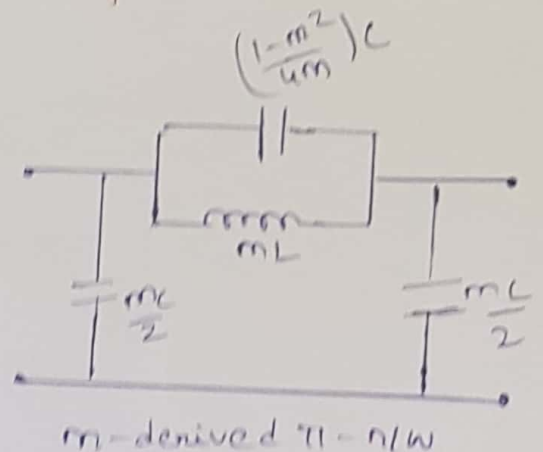 (1-m²/4m)C
mL
mc/2
mc/2
m-derived π-n/w